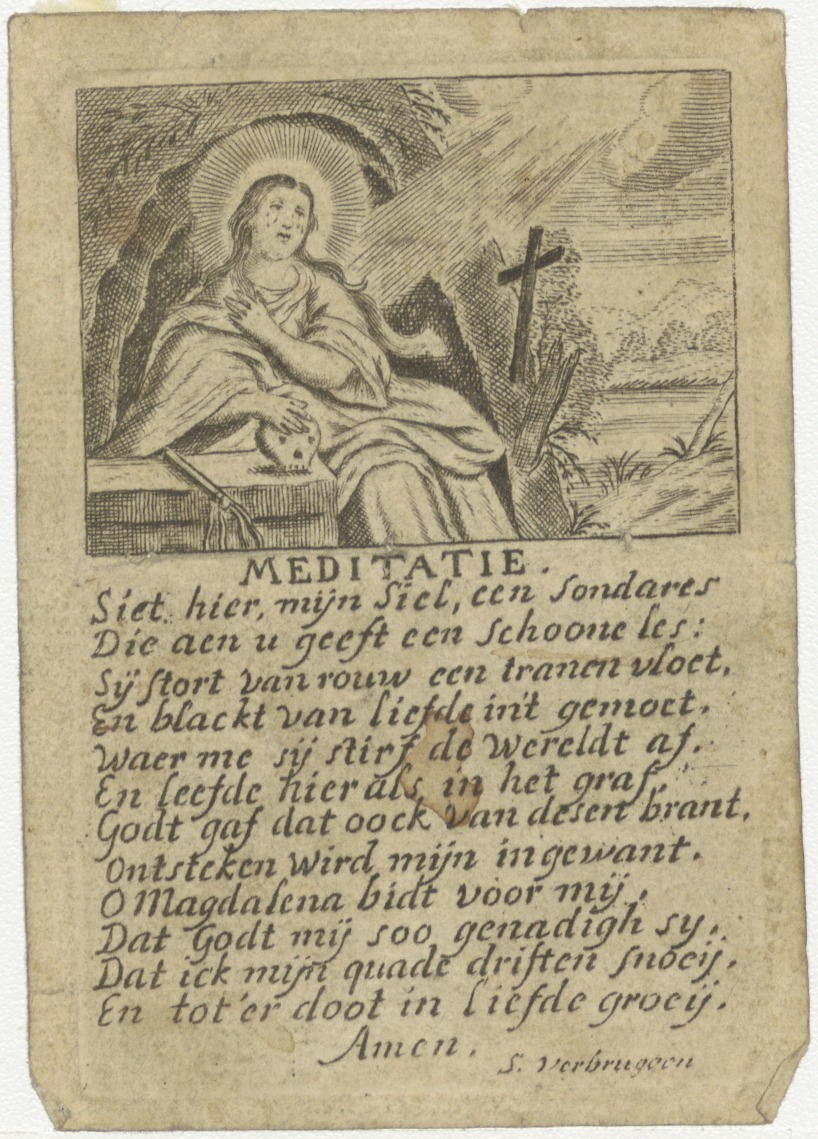 MEDITATIE.
Siet hier, mijn Siel, een sondares
Die aen u geeft een schoone les:
Sij stort van rouw een tranen vloet,
En blackt van liefde in't gemoet.
Waer me sij stirf de Wereldt af.
En leefde hier als in het graf.
Godt gaf dat oock van desen brant,
Ontsteken wird mijn ingewant.
O Magdalena bidt voor mij,
Dat Godt mij soo genadigh sy,
Dat ick mijn quade driften snoeij,
En tot'er doot in liefde groeij.
Amen.
S. Verbruggen